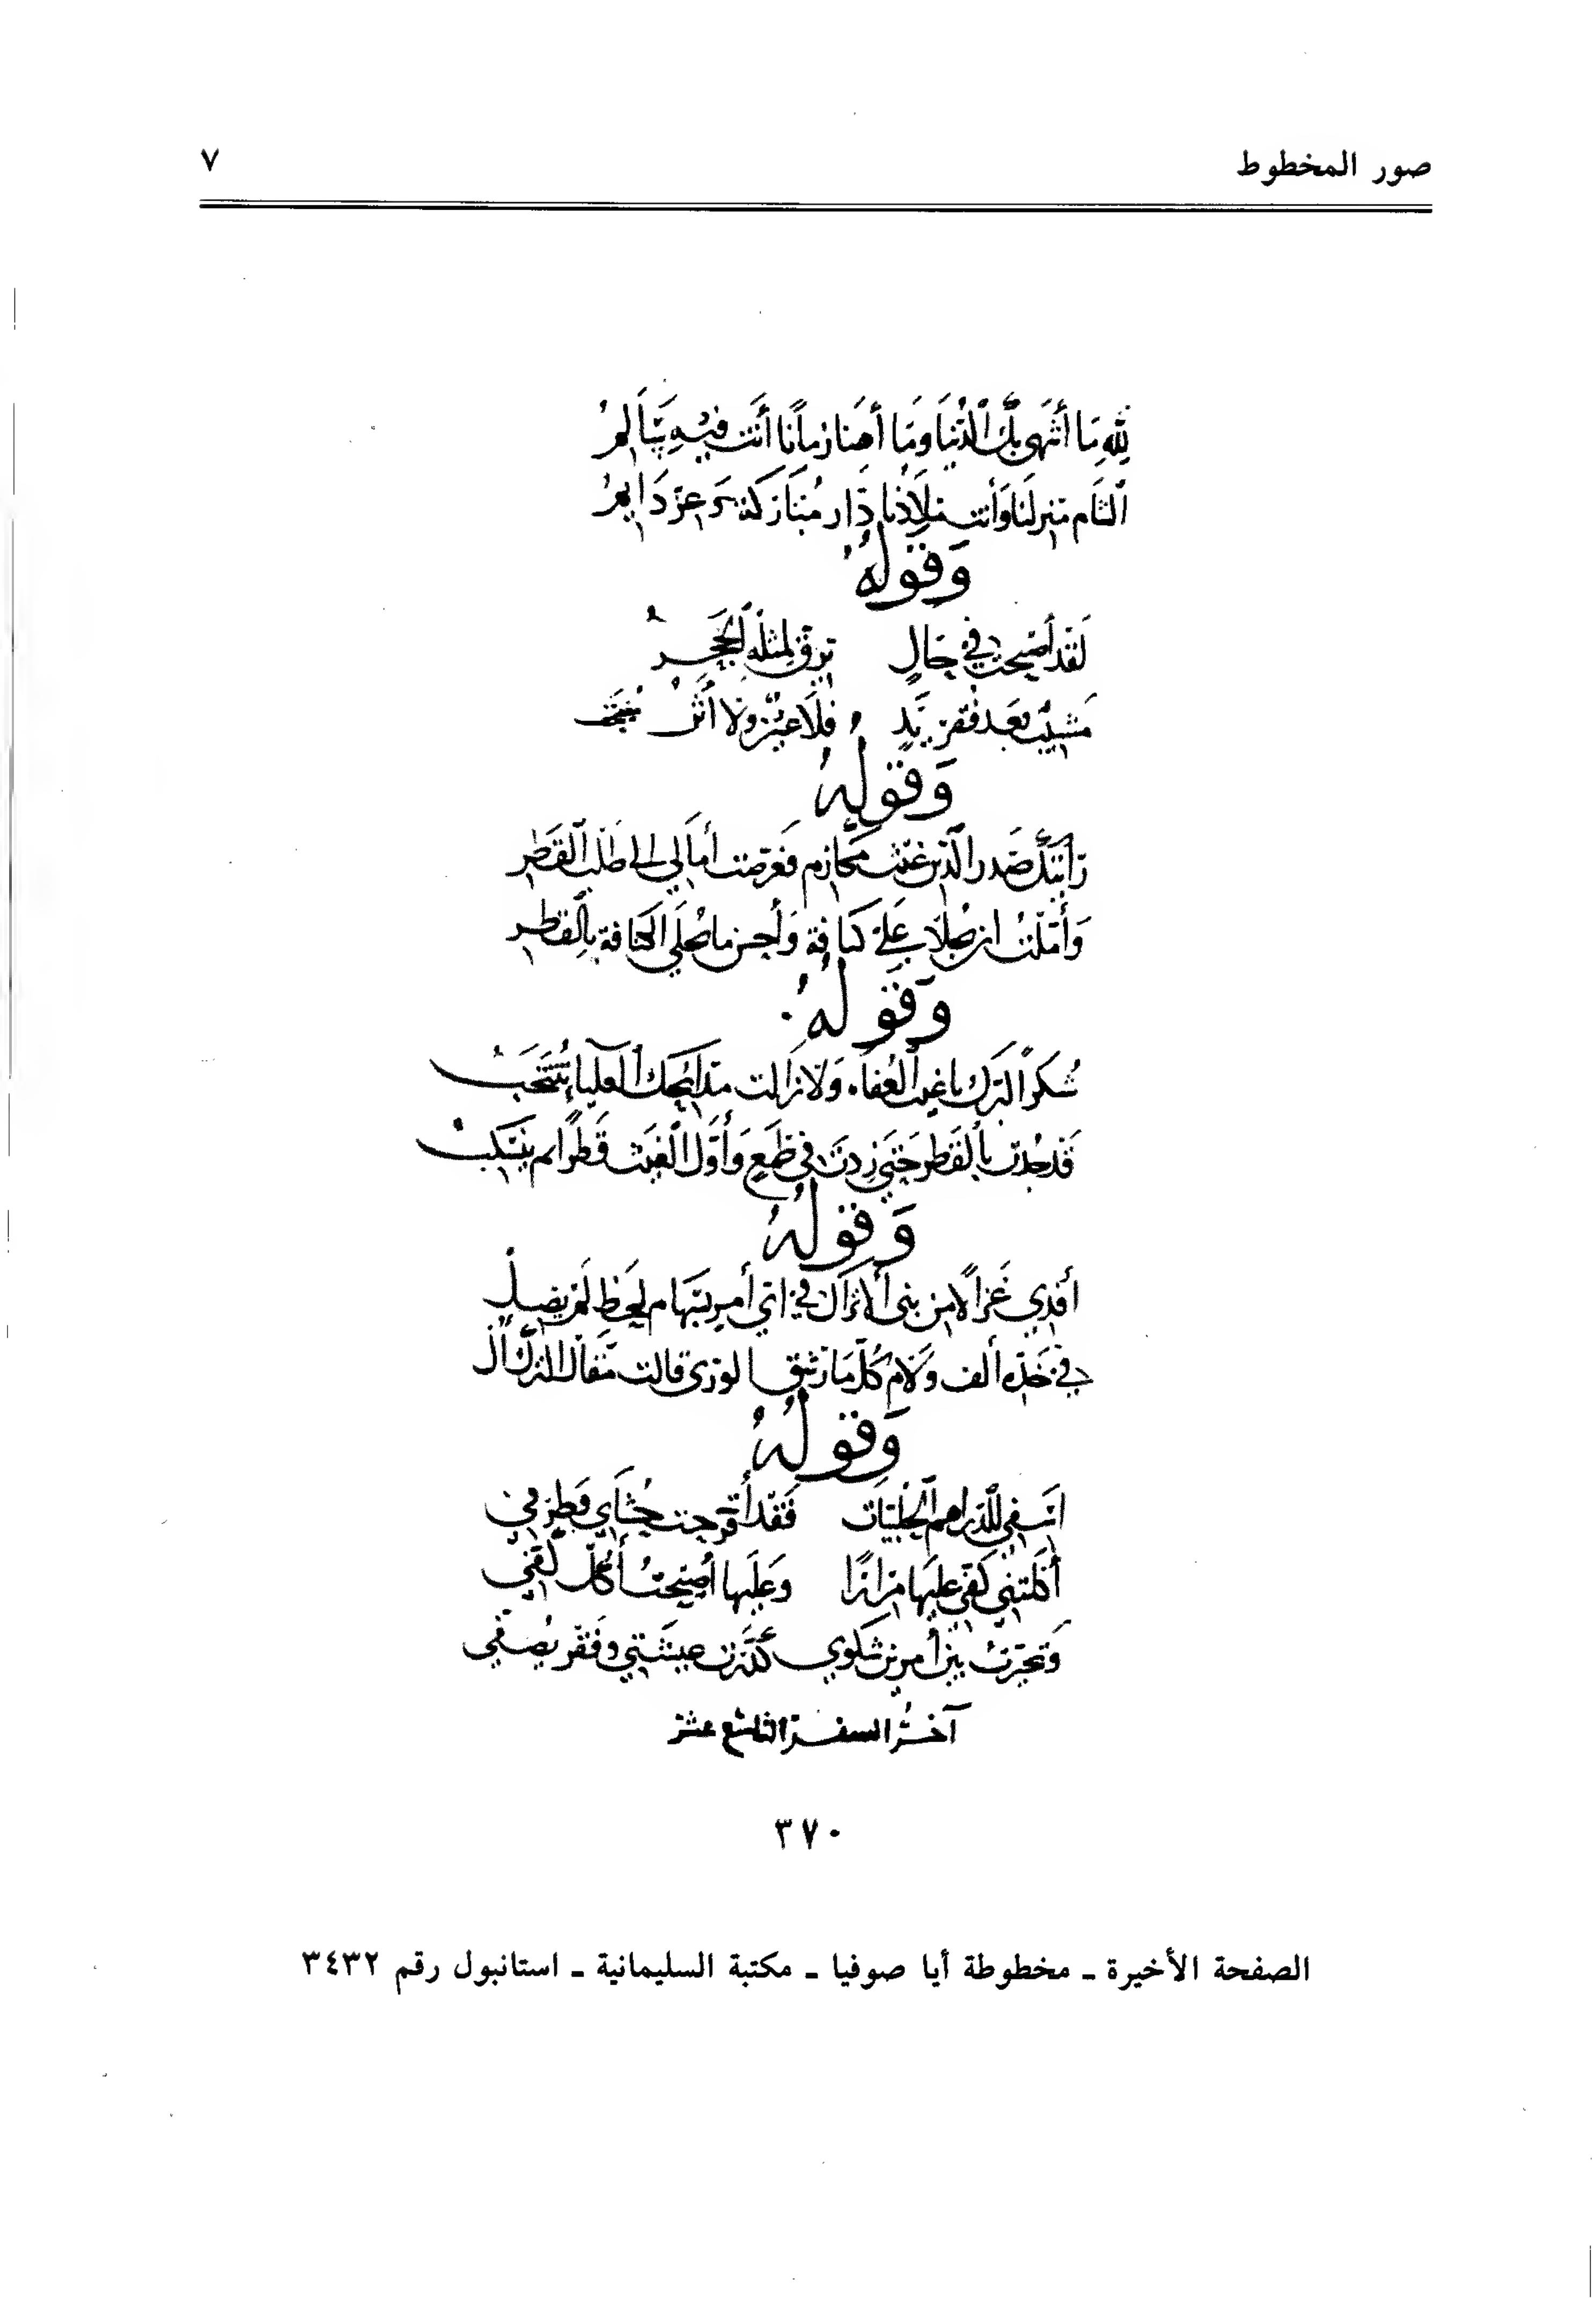 صور المخطوط
٧
لله ما أشهى بك الدنيا وما أهنا زمانا أنت فيه سالم
الشام منزلنا وأنت ملاذنا دار مباركة وعز دايم
وقوله
لقد أصبحت في حال يرق لمثله الحجر
مشيب بعد فقر يد فلا عين ولا أثر
وقوله
رأيتك صدر الدين غيث مكارم فعرضت أمالي إلى طلب القطر
وأملت إن حلا علي كنافة وأحسن ما تحلى الكنافة بالقطر
وقوله
شكرا لبرك يا غيث العفاه ولا زالت مدايحك العليا تنتخب
قد جدت بالقطر حتى زدت في طمع وأول الغيث قطر ثم ينسكب
وقوله
أفدي غزالا من بني الاتراك في أي أمير بسهام لحظ لم يصل
في خده ألف ولام كلما رشق الورى قالت مقال الترك ال
وقوله
اسفي للدراهم الحلبيات فقد أقرحت حشاي وطرفي
أقلتني كفي عليها مرارا وعليها أصبحت أقلب كفي
وتحيرت بين أمرين شكوي كدرت عيشتي وفقر يصفي
آخر السفر التاسع عشر
٣٧٠
الصفحة الأخيرة ـ مخطوطة أيا صوفيا ـ مكتبة السليمانية ـ استانبول رقم ٣٤٣٢